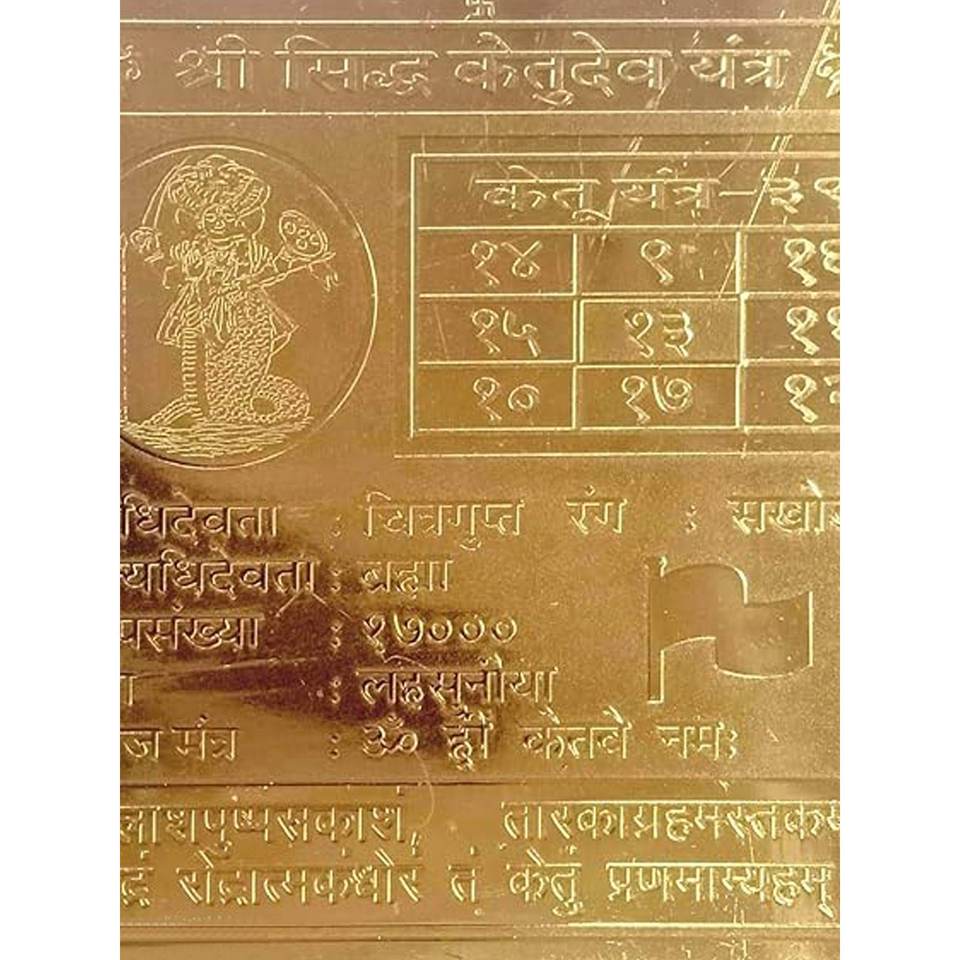 श्री सिद्ध केतुदेव यंत्र
केतू यंत्र-३९
१४ ९ १६
१५ १३ ११
१० १७ १२
धिदेवता : चित्रगुप्त रंग : सखो
यधिदेवता : ब्रह्मा
पसंख्या : १७०००
: लहेसुनीया
ज मंत्र : ॐ ह्रीं केतवै नमः
लाशपुष्पसकाश, तारकाग्रहमस्तकम
द्रं रोद्रात्मकंधोरं तं केतुं प्रणमाम्यहम्